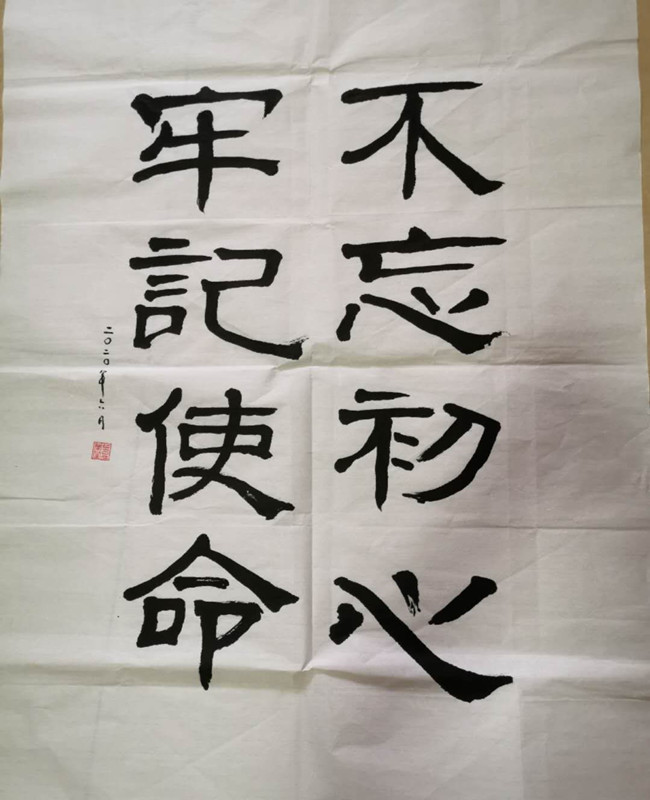 不忘初心
牢記使命
二〇二〇年六月